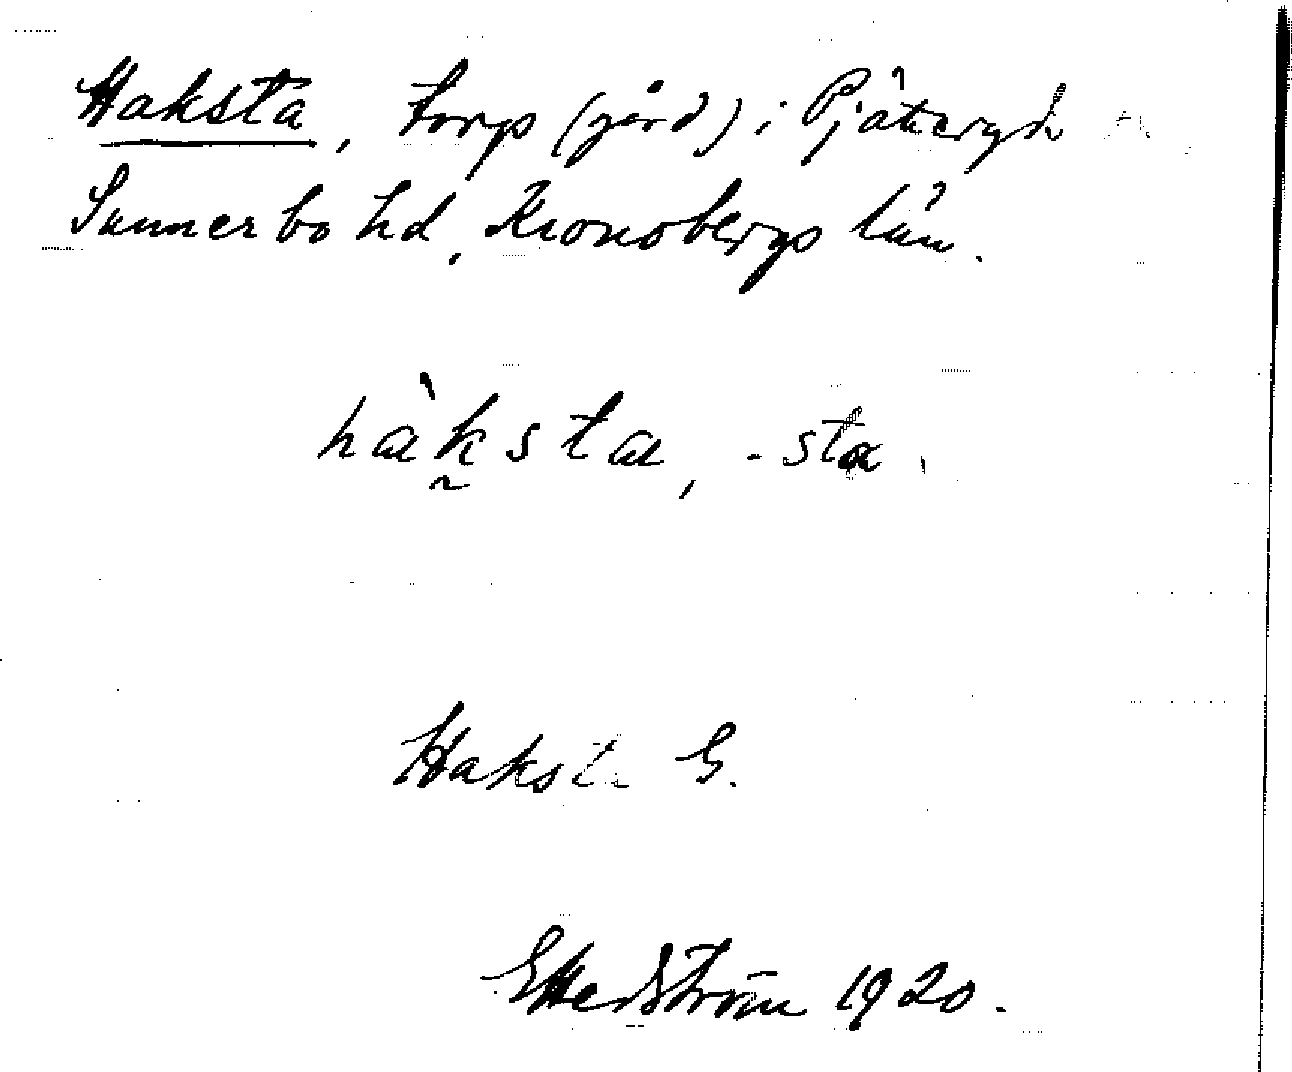 Haksta, torp (gård) i Pjätteryd
Sunnerbo hd, Kronobergs län.
hàksta, -sta.
Haksta G.
E Hedström 1920.